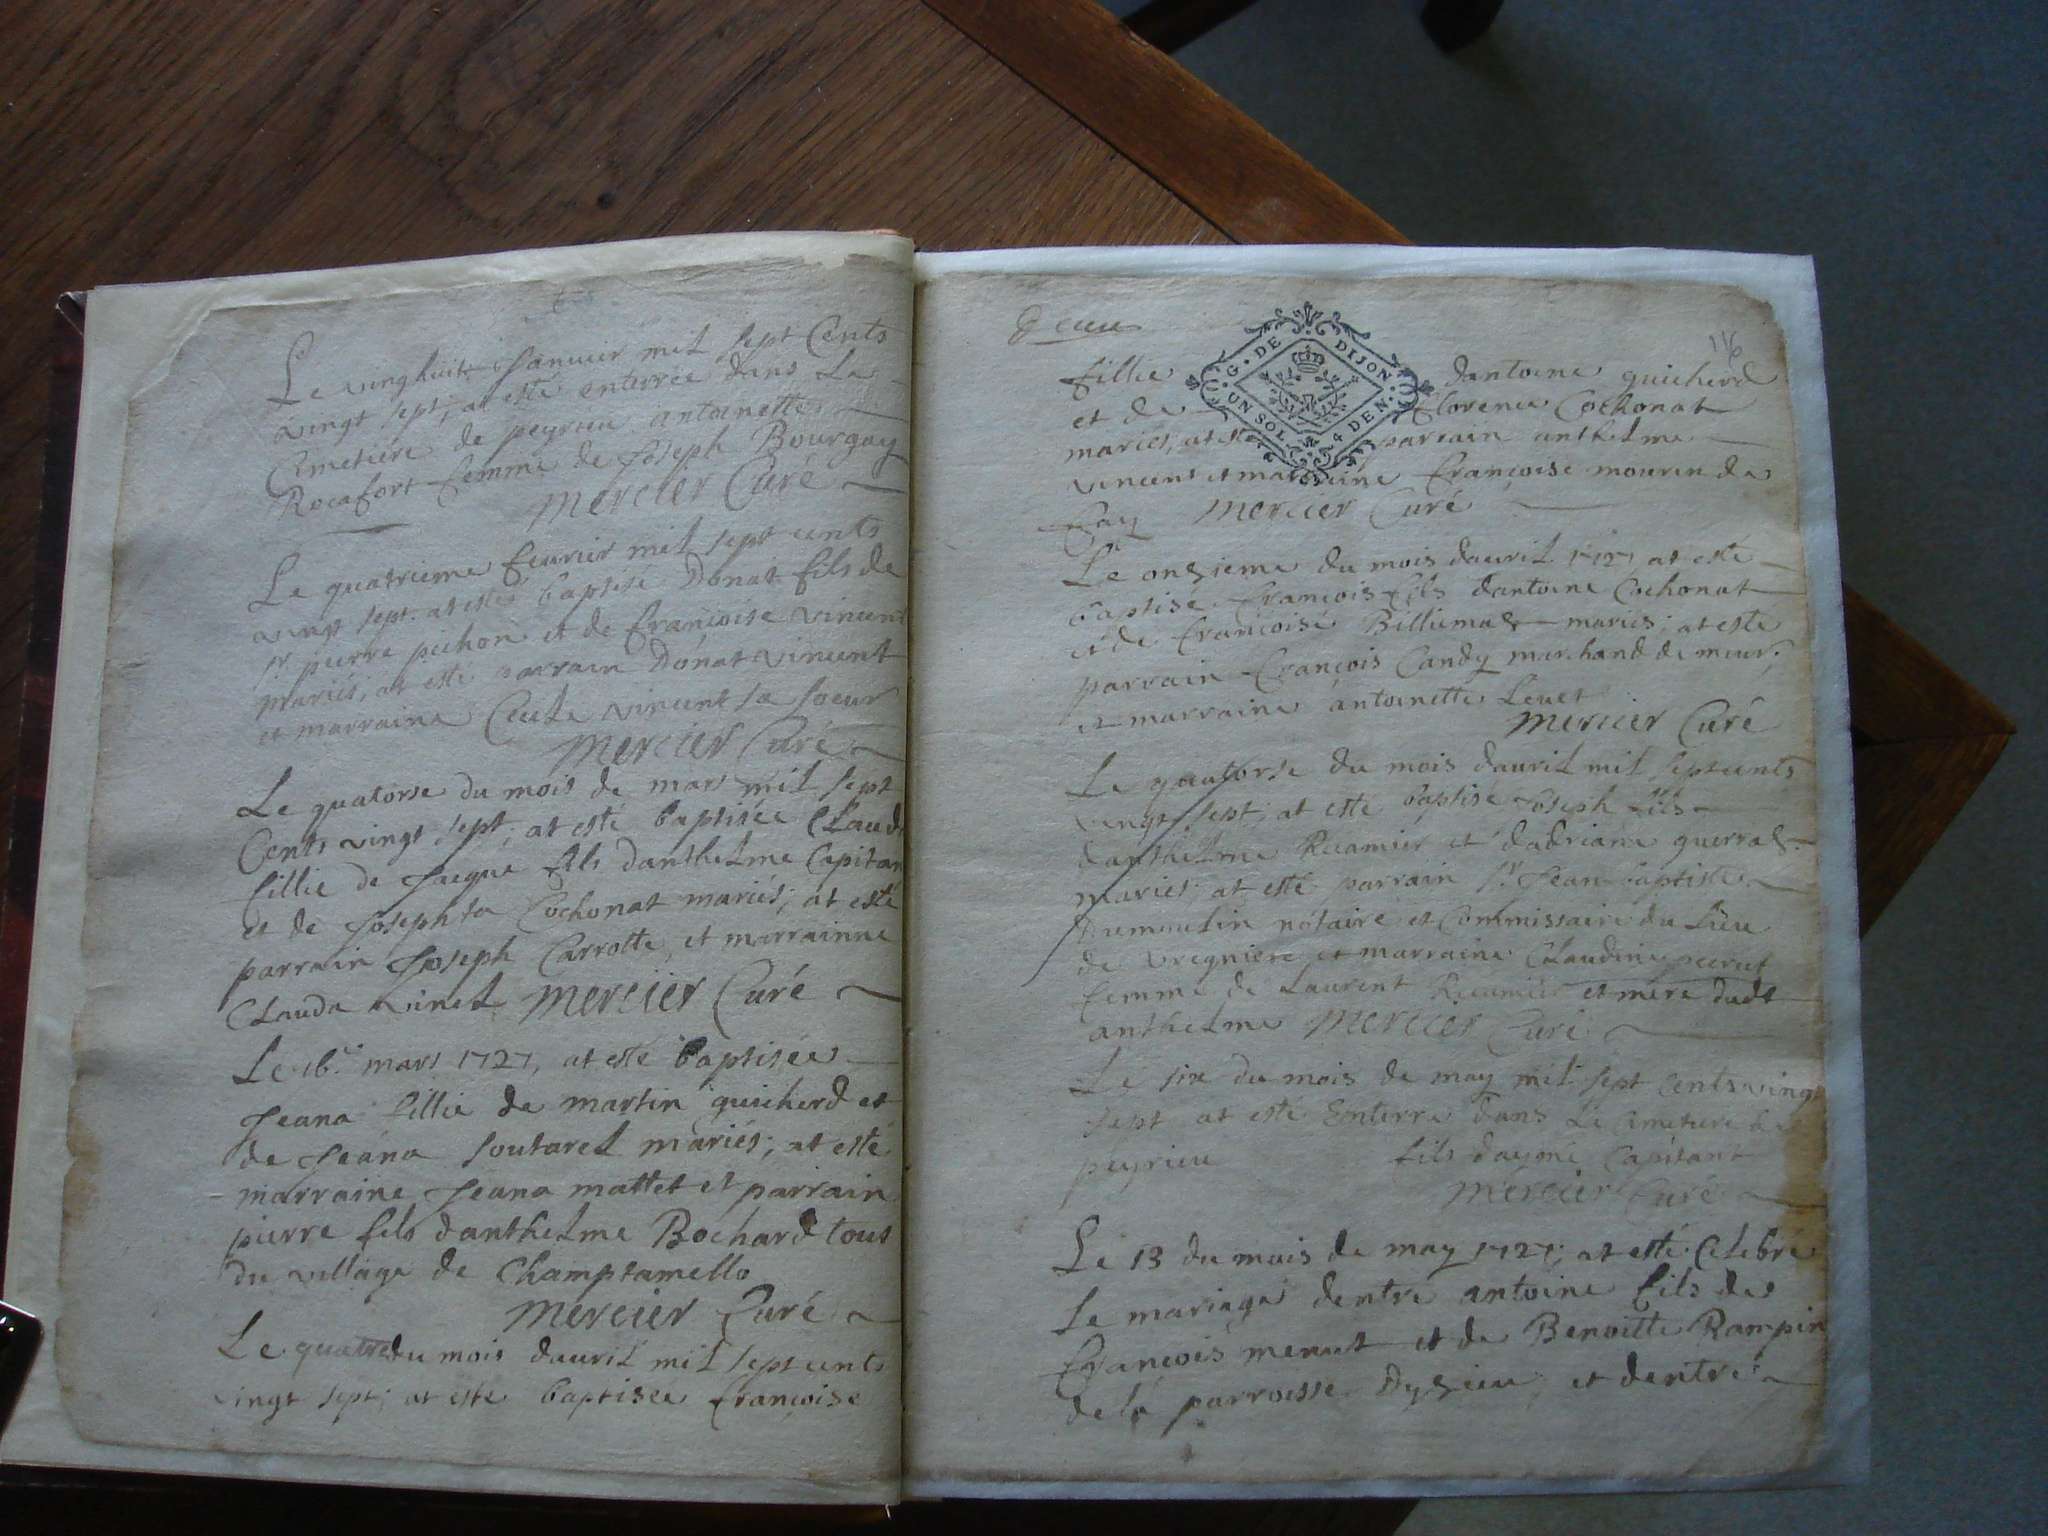 Le vinghuit Januier mil sept Cents
vingt sept, at esté enterrée dans Le
Cimetiere de peyrieu antoinette
Rocafort femme de Joseph Bourgay
Mercier Curé
Le quatrieme feurier mil sept cents
vingt sept. at esté baptisé Donat fils de
sr. pierre pichon et de françoise vincent
mariés; at esté parrain Donat vincent
et marraine vincent sa soeur
Mercier Curé
Le quatorse du mois de mars mil sept
Cents vingt sept; at esté baptisée Claude
fillie de Jaeque fils danthelme Capitan
et de Josephta Cochonat mariés; at esté
parrain Joseph Carrotte, et marrainne
Clauda vinel Mercier Curé
Le 16.e mars 1727, at esté baptisée
Jeana fillie de martin quicherd et
de Jeana soutarel mariés; at esté
marraine Jeana mattet et parrain
pierre fils danthelme Bochard tous
du village de Champtamello
Mercier Curé
Le quatre du mois dauril mil sept cents
vingt sept; at este baptisee françoise
116
G. DE DIJON
UN SOL 4 DEN.
fillie dantoine quicherd
et de florence Cochonat
mariés, at esté parrain anthelme
vincent et marraine françoise mourin de
fay Mercier Curé
Le onzieme du mois dauril 1727 at esté
baptisé françois fils dantoine Cochonat
et de françoise Billiemas mariés; at esté
parrain françois Candy marchand de meur;
et marraine antoinette Levet
Mercier Curé
Le quatorse du mois dauril mil sept cents
vingt sept; at esté baptisé Joseph fils
danthelme Recamier et dadriane guerraz
mariés; at esté parrain sr. Jean baptiste
Dumoulin notaire et Commissaire du Lieu
de vregniere et marraine Claudine
femme de Laurent Recamier et mere dudt
anthelme Mercier Curé
Le six du mois de may mil sept Cents vingt
sept at esté Enterré dans Le Cimetiere de
peyrieu fils dayme Capitant
Mercier Curé
Le 13 du mois de may 1727; at esté Celebré
Le mariage dentre antoine fils de
françois menut et de Benoitte Rampin
de la parroisse Dyzieu; et dentre